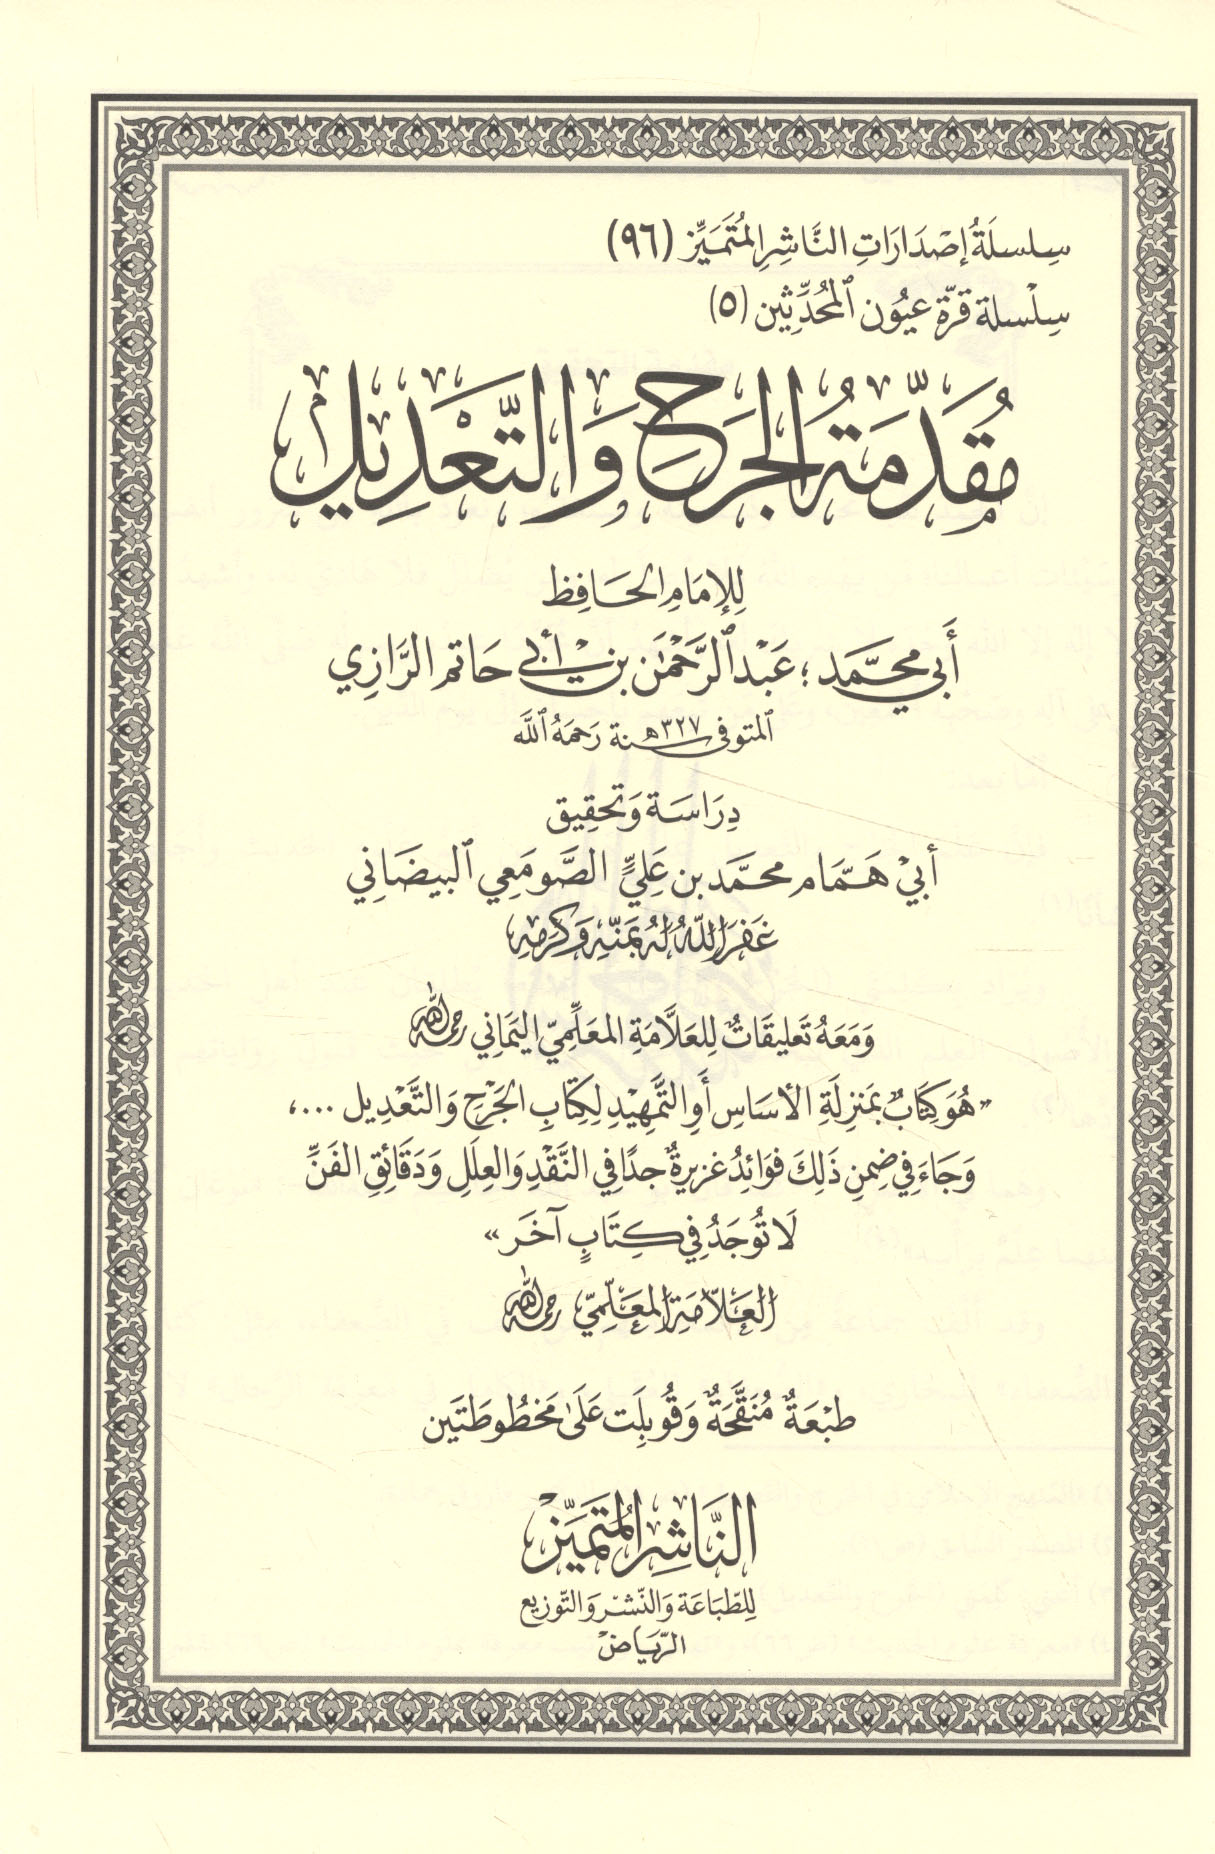 سِلسلَةُ إصْدَارَاتِ النَّاشِرِ المُتَمَيِّز (٩٦)
سِلْسلة قرّة عيُون ٱلمُحدِّثِين (٥)
مُقَدِّمَةُ الجَرحِ وَالتَّعْدِيلِ
لِلإمَامِ الحَافِظ
أَبي محمَّد ؛ عَبْد ٱلرَّحْمٰن بن أبي حَاتم الرَّازِي
ٱلمتوفى سنة ٣٢٧هـ رَحمَهُ ٱللَّه
دِرَاسَة وَتحقِيق
أبيْ هَمَّام محمَّد بن عَليٍّ الصَّومَعِي ٱلبيضَاني
غَفرَ اللَّهُ لهُ بمَنّهِ وَكرَمِهِ
وَمَعَهُ تَعليقَاتٌ لِلعَلَّامَةِ المعَلِّمِيّ اليَمَاني رحمه الله
«هُوَ كِتَابٌ بمَنزِلَةِ الأسَاسِ أَوِ التَّمْهِيْدِ لِكِتَابِ الجَرْحِ وَالتَّعْدِيل ...،
وَجَاءَ فِي ضِمنِ ذَلِكَ فوَائِدُ غزِيرةٌ جدًا في النَّقْدِ وَالعِلَلِ وَدَقَائِقِ الفَنِّ
لَا تُوجَدُ فِي كِتَابٍ آخَر»
العَلَّامَة المعَلِّمِيّ رحمه الله
طبْعَةٌ مُنَقَّحَةٌ وَقُوبِلَت عَلَىٰ مَخطُوطَتَين
النَّاشِر المُتَمَيِّز
لِلطّبَاعَة وَالنّشْر وَالتّوزيع
الرّيَاضْ